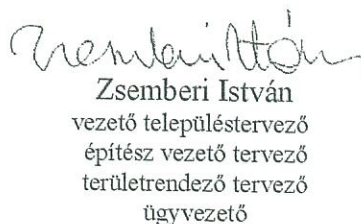 Zsemberi István
vezető településtervező
építész vezető tervező
területrendező tervező
ügyvezető